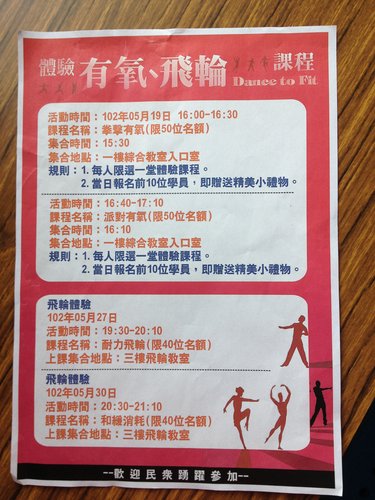 體驗 有氧、飛輪 課程
Dance to Fit
活動時間：102年05月19日 16:00-16:30
課程名稱：拳擊有氧(限50位名額)
集合時間：15:30
集合地點：一樓綜合教室入口室
規則：1. 每人限選一堂體驗課程。
2. 當日報名前10位學員，即贈送精美小禮物。
活動時間：16:40-17:10
課程名稱：派對有氧(限50位名額)
集合時間：16:10
集合地點：一樓綜合教室入口室
規則：1. 每人限選一堂體驗課程。
2. 當日報名前10位學員，即贈送精美小禮物。
飛輪體驗
102年05月27日
活動時間：19:30-20:10
課程名稱：耐力飛輪(限40位名額)
上課集合地點：三樓飛輪教室
飛輪體驗
102年05月30日
活動時間：20:30-21:10
課程名稱：和緩消耗(限40位名額)
上課集合地點：三樓飛輪教室
--歡迎民眾踴躍參加--